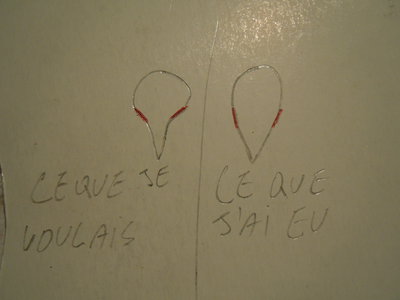 CE QUE JE
VOULAIS
CE QUE
J'AI EU